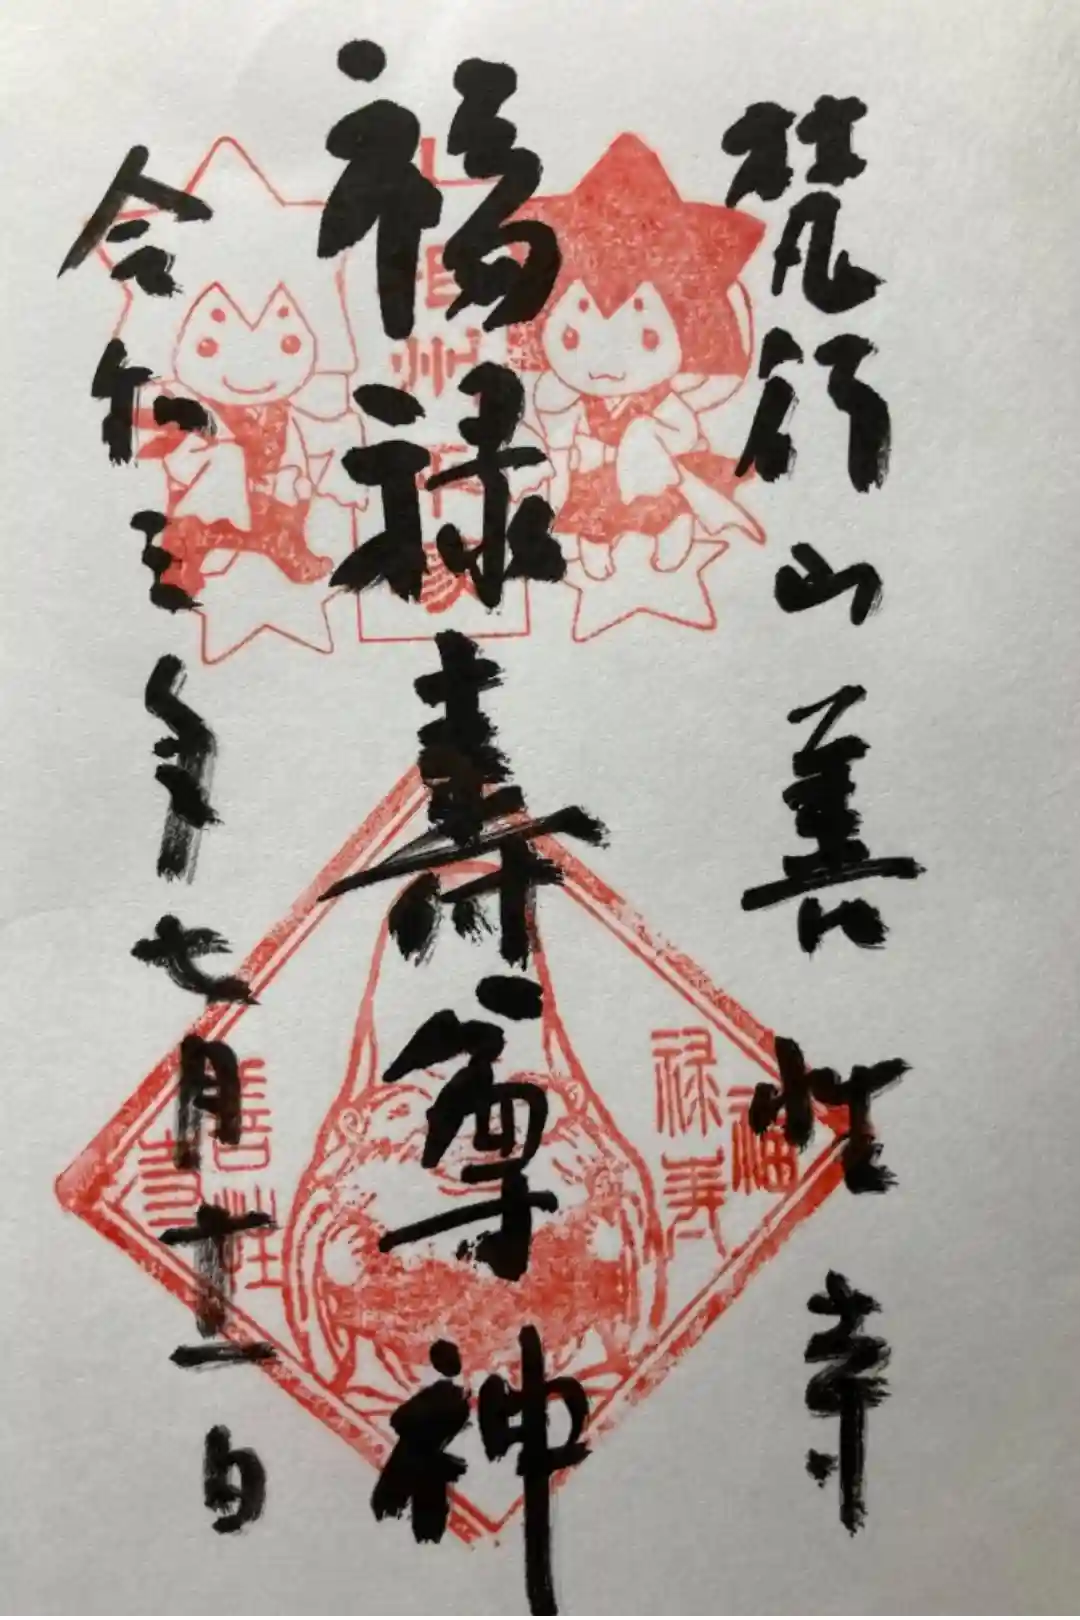 梵行山善性寺
福禄寿尊神
令和三年七月十一日
福
禄寿
善性